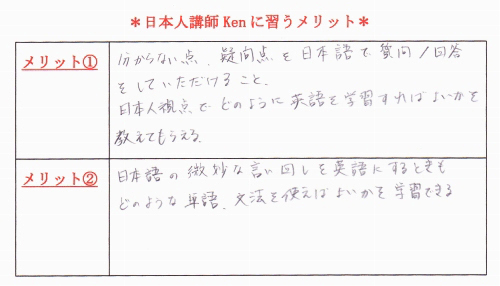 ＊日本人講師Kenに習うメリット＊
メリット①
分からない点、疑問点を日本語で質問/回答
をしていただけること、
日本人視点でどのように英語を学習すればよいかを
教えてもらえる
メリット②
日本語の微妙な言い回しを英語にするときも
どのような単語、文法を使えばよいかを学習できる